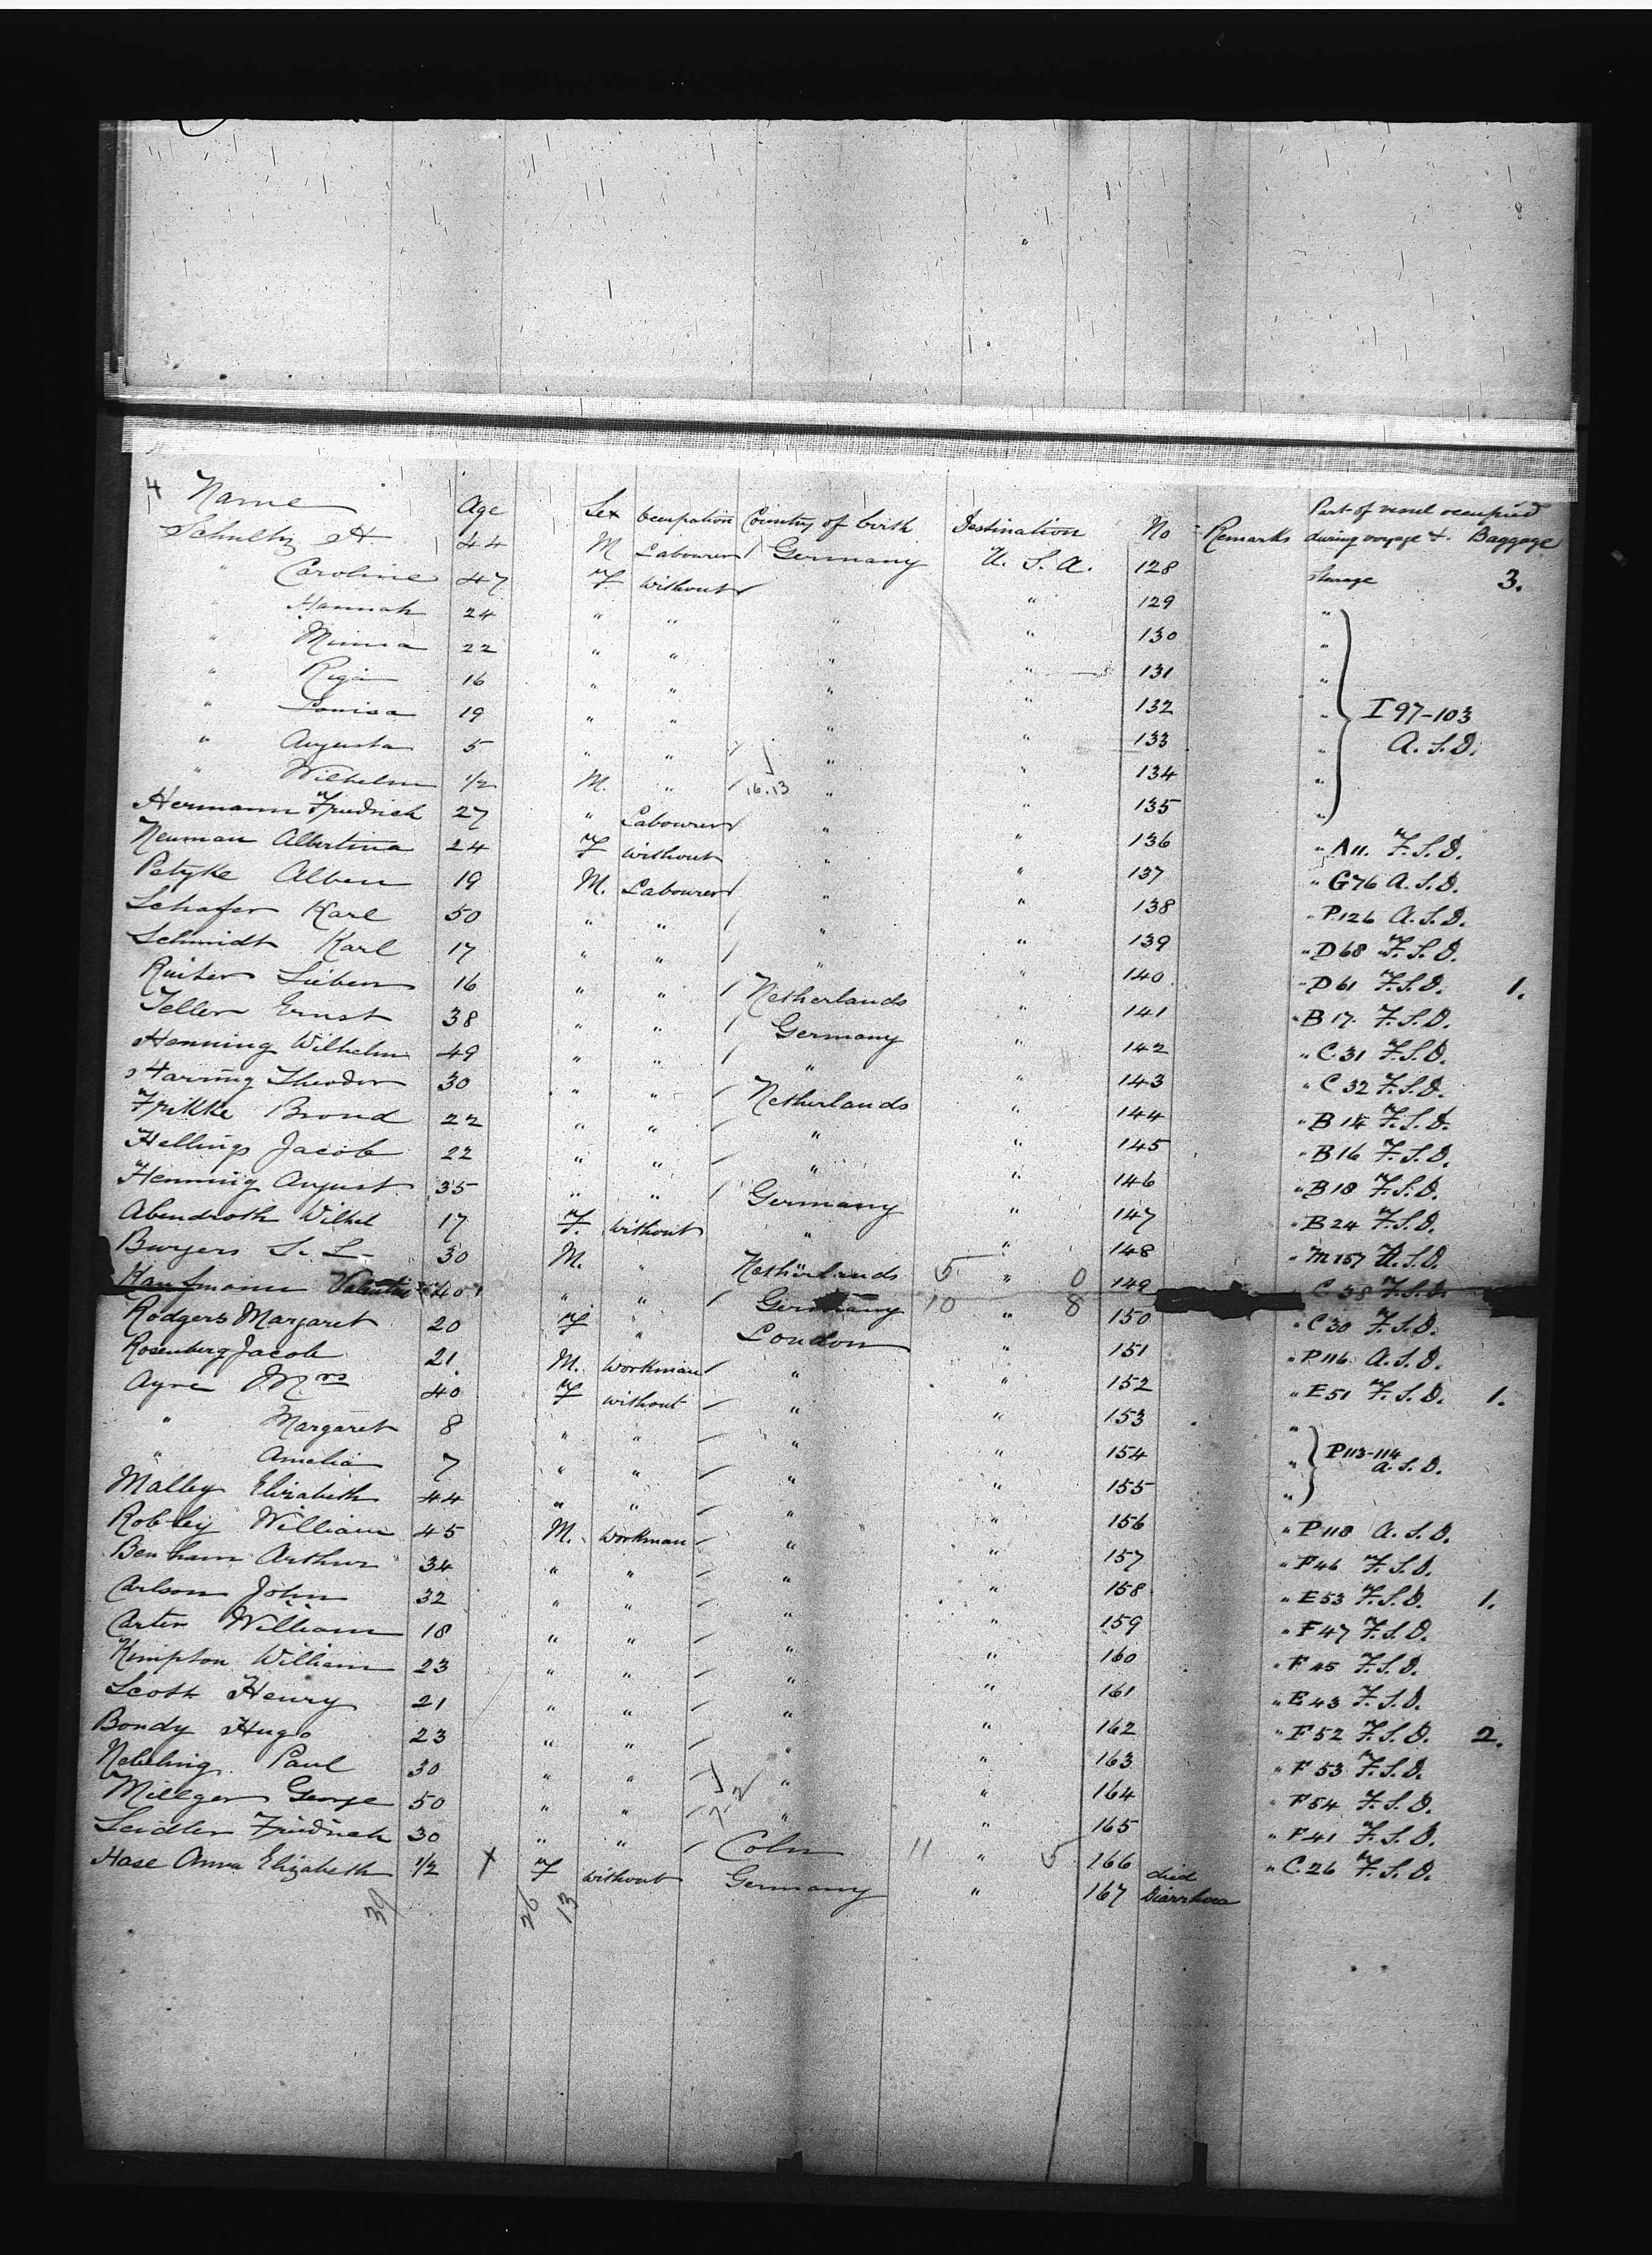 4 Name Age Sex Occupation Country of birth Destination No Remarks Part of vessel occupied during voyage &. Baggage
Schultz H 44 M Labourer Germany U. S. A. 128 Sterage 3.
" Caroline 47 F without " 129 "
" Hannah 24 " " " " 130 "
" Minna 22 " " " " 131 "
" 16 " " " " 132 " I 97-103
" Louisa 19 " " " " 133 " A. S. D.
" Augusta 5 " " " " 134 "
" Wilhelm 1/2 M. " 16.13 " " 135 "
Hermann Friedrich 27 " Labourer " " 136 " A11. F. S. D.
Neuman Albertina 24 F without " " 137 " G76 A. S. D.
Petyke Alben 19 M. Labourer " " 138 " P.126 A. S. D.
Schafer Karl 50 " " " " 139 " D68 F. S. D.
Schmidt Karl 17 " " " " 140 " D61 F. S. D. 1.
Ruiter Lieben 16 " " Netherlands " 141 " B17. F. S. D.
Teller Ernst 38 " " Germany " 142 " C.31 F. S. D.
Henning Wilhelm 49 " " " " 143 " C32 F. S. D.
Harring Theodor 30 " " Netherlands " 144 " B14 F. S. D.
Frikke Brond 22 " " " " 145 " B16 F. S. D.
Hellings Jacob 22 " " " " 146 " B18 F. S. D.
Henning August 35 " " Germany " 147 " B24 F. S. D.
Abendroth Wilhel 17 F without " " 148 " M157 A. S. D.
Burgers S. L. 30 M. " Netherlands 5 " 0 149 C 38 F. S. D.
Kaufmann 40 " " Germany 10 " 8 150 " C30 F. S. D.
Rodgers Margaret 20 F " London " 151 " P116 A. S. D.
Rosenberg Jacob 21 M. Workman " " 152 " E51 F. S. D. 1.
Ayre Mrs 40 F without " " 153 "
" Margaret 8 " " " " 154 " P113-114 A. S. D.
" Amelia 7 " " " " 155 "
Malley Elizabeth 44 " " " " 156 " P118 A. S. D.
Robley William 45 M. Workman " " 157 " F46 F. S. D.
Benham Arthur 34 " " " " 158 " E53 F. S. D. 1.
Carlson John 32 " " " " 159 " F47 F. S. D.
Carter William 18 " " " " 160 " F45 F. S. D.
Kimpton William 23 " " " " 161 " E43 F. S. D.
Scott Henry 21 " " " " 162 " F52 F. S. D. 2.
Bondy Hugo 23 " " " " 163 " F53 F. S. D.
Nebeling Paul 30 " " " " 164 " F54 F. S. D.
Millger George 50 " " " " 165 " F41 F. S. D.
Seidler Friedrich 30 " " Coln 11 " 5 166 " C.26 F. S. D.
Hase Anna Elizabeth 1/2 X F without Germany " 167 died Diarrhoea
39 26 13